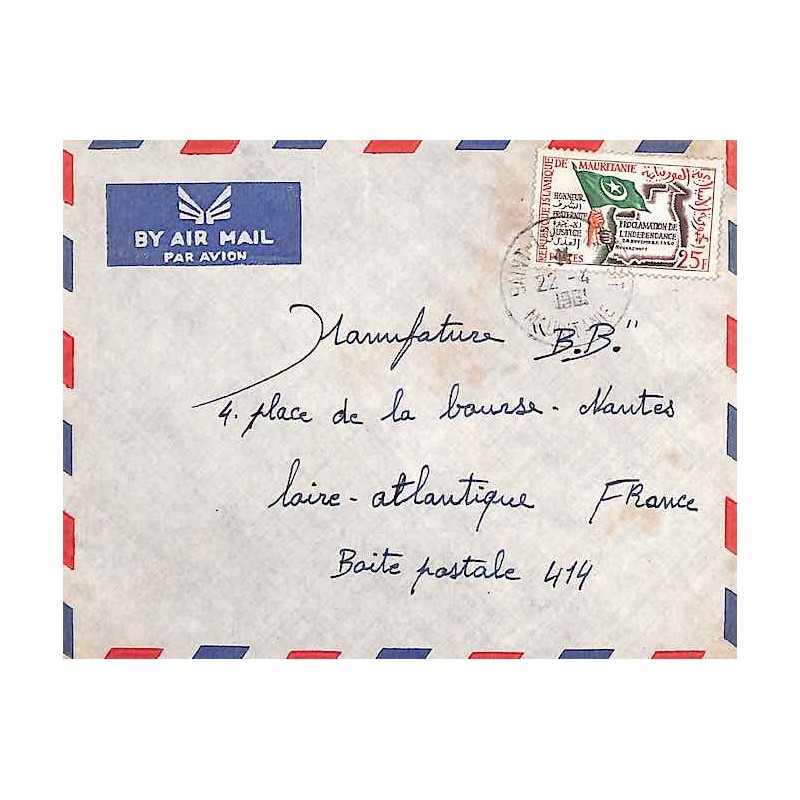 BY AIR MAIL
PAR AVION
REPUBLIQUE ISLAMIQUE DE MAURITANIE
HONNEUR
الشرف
FRATERNITÉ
JUSTICE
العدل
POSTES
PROCLAMATION DE
L'INDÉPENDANCE
28 NOVEMBRE 1960
25F
22 - 4
1961
MAURITANIE
Manufature "B.B."
4. place de la bourse - Nantes
Loire - atlantique FRance
Boite postale 414